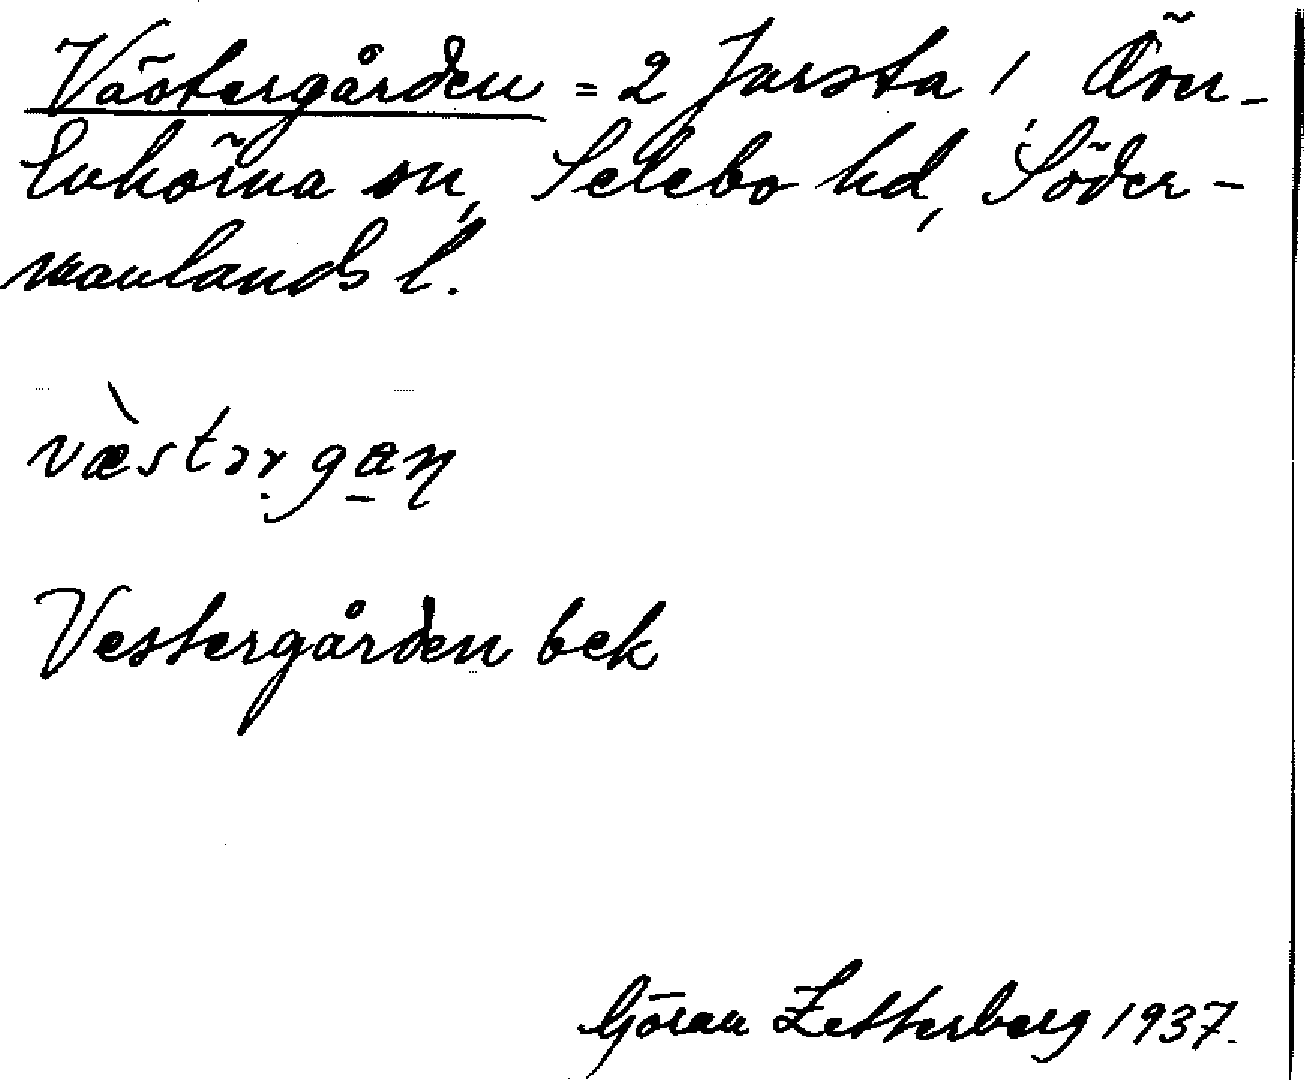 Västergården = 2 Jursta / Över-
Enhörna sn, Selebo hd, Söder-
manlands l.
vὰstərgaɳ
Vestergården bek
Göran Zetterberg 1937.